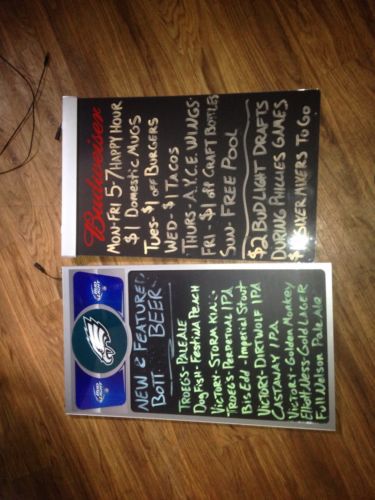 Budweiser
MON-FRI 5-7 HAPPY HOUR
$1 DOMESTIC MUGS
TUES- $1 OFF BURGERS
WED- $1 TACOS
THURS- A.Y.C.E. WINGS
FRI- $1 off CRAFT BOTTLES
SUN- FREE POOL
$2 BUD LIGHT DRAFTS
DURING PHILLIES GAMES
SIXER MIXERS TO GO
BUD LIGHT
EAGLES
BUD LIGHT
NEW & FEATURED
BOTT. BEER
TROEGS-PALE ALE
Dog Fish-FESTINA PEACH
VICTORY-STORM KING
TROEGS-PERPETUAL IPA
Big Edd-Imperial Stout
VICTORY-DIRTWOLF IPA
CASTAWAY IPA
VICTORY-Golden Monkey
Elliott Ness-Gold LAGER
Full Nelson Pale Ale